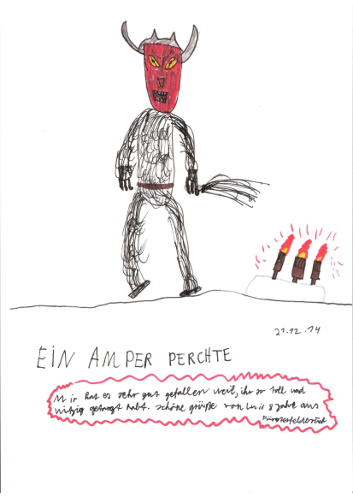 21.12.14
EIN AMPER PERCHTE
Mir hat es sehr gut gefallen weil, ihr so toll und
witzig getanzt habt. schöne grüße von Luis 8 Jahre aus
Fürstenfeldbruck